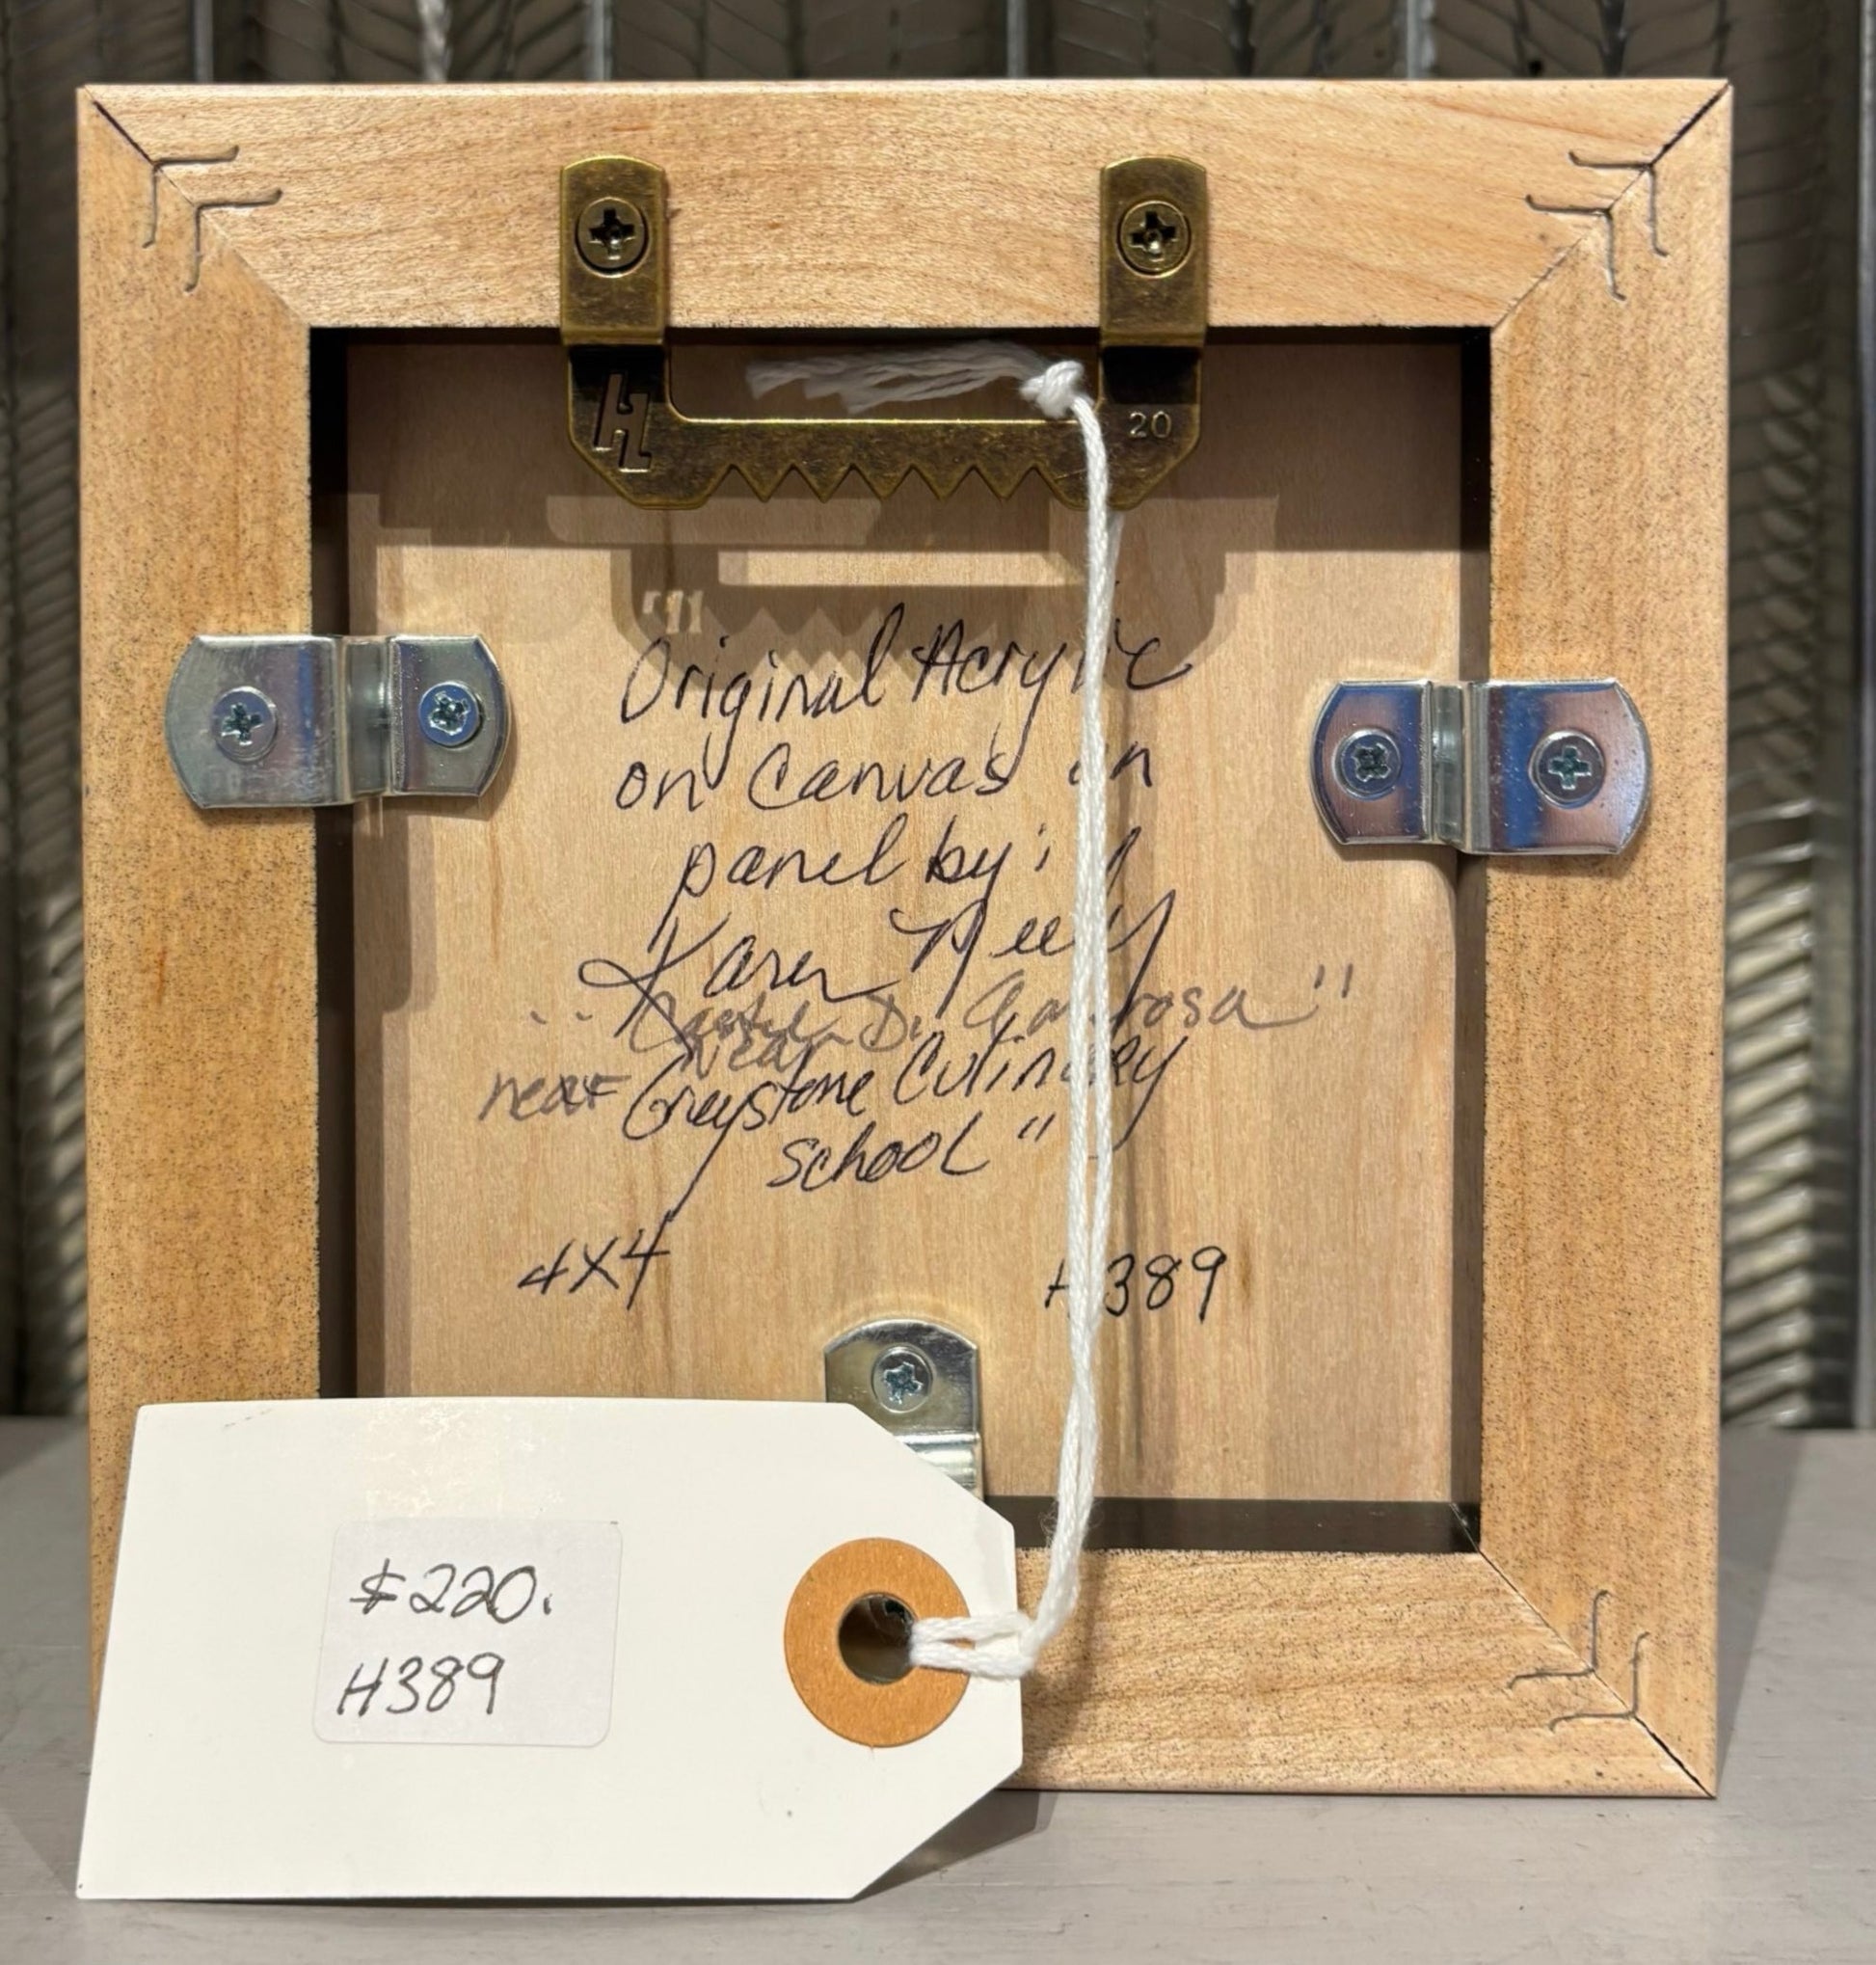 HL
20
"
Original Acrylic
on Canvas on
panel by:
Karen Neely
" Di
near
near Greystone Culinary
school"
4x4 H389
$220.
H389